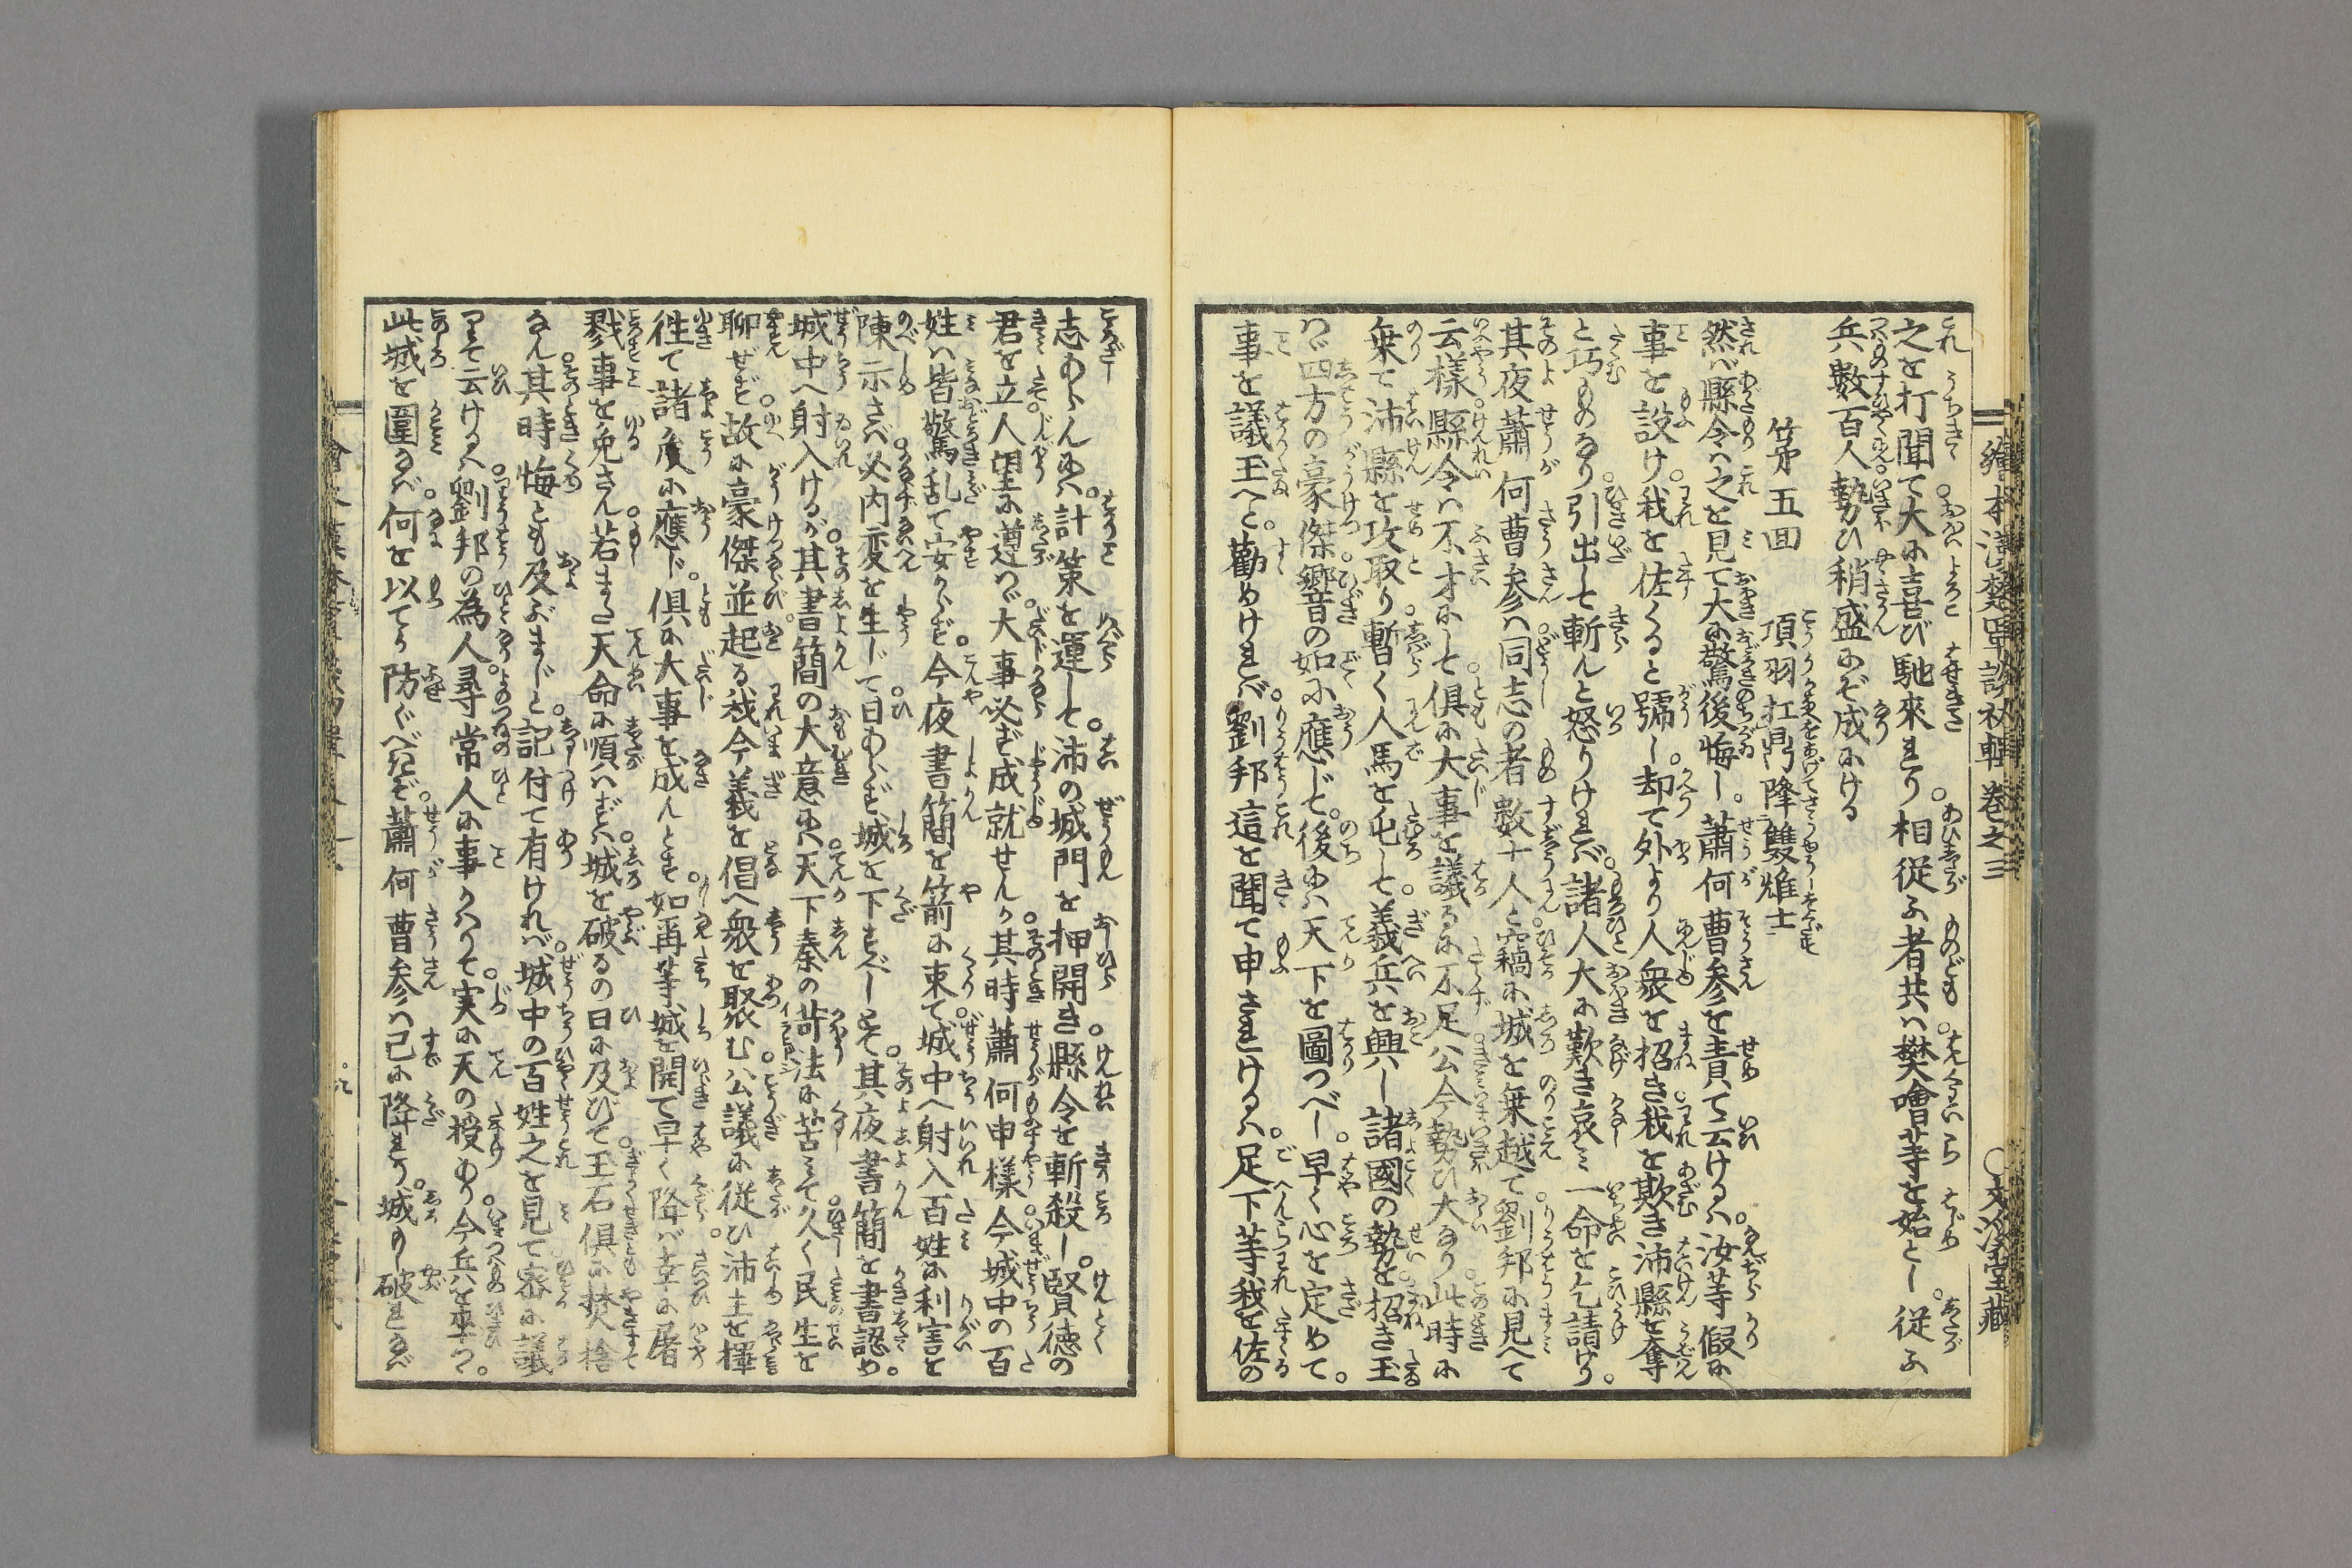 繪本漢楚軍談初輯 巻之三 〇文溪堂藏
之を打聞て大に喜び馳來れり相從ふ者共ハ樊噲等を始とし從ふ
兵數百人勢ひ稍盛にぞ成にける
第五回 項羽扛鼎降雙雄士
然ば縣令ハ之を見て大に驚後悔し蕭何曹参を責て云けるハ汝等假に
事を設け我を佐くると號し却て外より人衆を招き我を欺き沛縣を奪ん
と巧ものなり引出して斬んと怒りけれバ諸人大に歎き哀ミ一命を乞請けり。
其夜蕭何曹参ハ同志の者數十人と竊に城を乗越て劉邦に見へて
云樣縣令ハ不才にして倶に大事を議るに不足公今勢ひ大なり此時に
乗て沛縣を攻取り暫く人馬を屯して義兵を興し諸國の勢を招き玉
ハヾ四方の豪傑響の如に應じて後にハ天下を圖つべし早く心を定めて。
事を議玉へと勸めけれバ劉邦這を聞て申されけるハ足下等我を佐の
志あらんにハ計策を運して沛の城門を押開き縣令を斬殺し賢徳の
君を立人望に遵ハヾ大事必ず成就せんか其時蕭何申樣今城中の百
姓ハ皆驚乱て安からず今夜書簡を箭に束て城中へ射入百姓に利害を
陳示さバ必内変を生じて日あらず城を下すべしとて其夜書簡を書認め。
城中へ射入けるが其書簡の大意にハ天下秦の苛法に苦ミて久く民生を
聊ぜず故に豪傑並起る我今義を倡へ衆を聚む公議に從ひ沛主を擇
徃て諸侯に應じ倶に大事を成んとす如再等城を開て早く降バ幸に屠
戮事を免さん若また天命に順ハずバ城を破るの日に及びて玉石倶に焚捨
なん其時悔とも及ぶまじと記付て有けれバ城中の百姓之を見て密に議
りて云けるハ劉邦の為人尋常人に事かハりて実に天の授あり今兵を率つ。
此城を圍なバ何を以てか防ぐべきぞ蕭何曹参ハ已に降れり城もし破れなバ